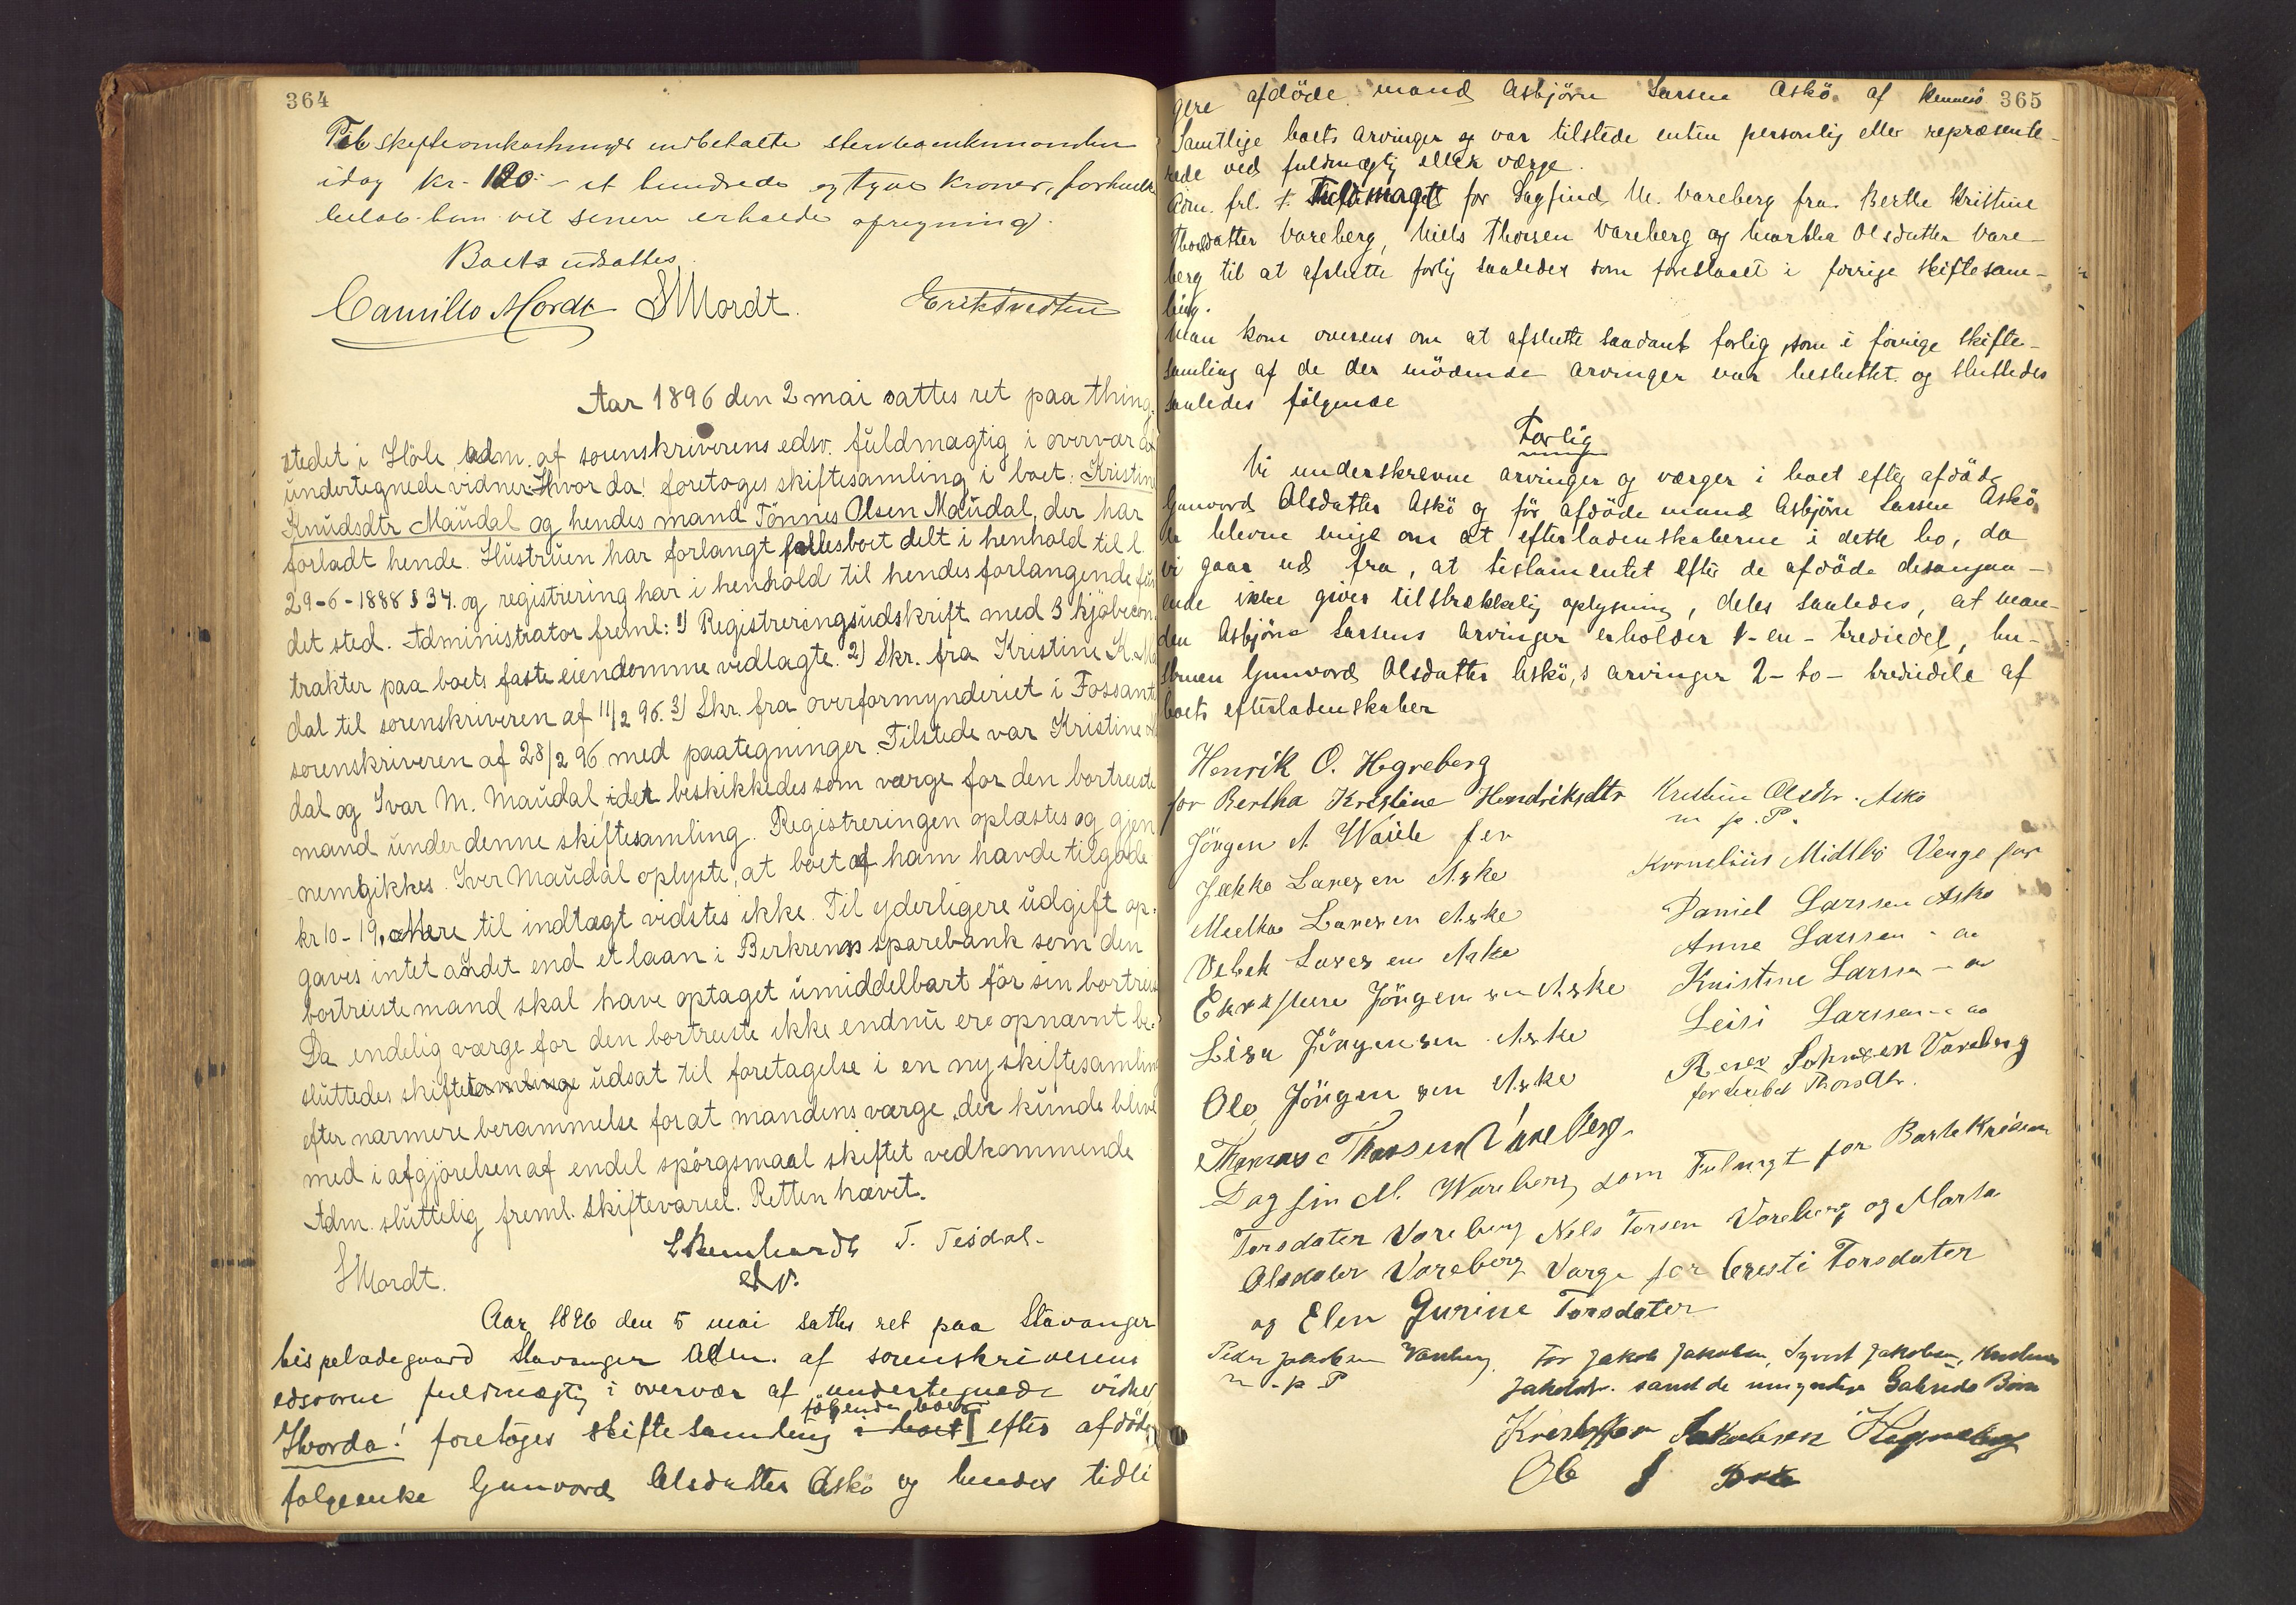 364
Til skifteomkostninger indbetalte sterboenkemanden
idag Kr. 120 - et hundrede og tyve Kroner, for hvilket
beløb han vil senere erholde opregning.
Boets udsattes.
Camillo Mordt SMordt. Erik Tvedten
Aar 1896 den 2 mai sattes ret paa thing-
stedet i Höle, adm. af sorenskriverens edsv. fuldmægtig i overvær af
undertegnede vidner. Hvor da! foretoges skiftesamling i boet: Kristine
Knudsdtr Maudal og hendes mand Tönnes Olsen Maudal, der har
forladt hende. Hustruen har forlangt fællesboet delt i henhold til l.
29-6-1888 § 34. og registrering har i henhold til hendes forlangende fun
det sted. Administrator freml: 1) Registreringsudskrift med 3 kjöbecon
trakter paa boets faste eiendomme vedlagte. 2) Skr. fra Kristine K. Mau
dal til sorenskriveren af 11/2 96. 3) Skr. fra overformynderiet i Fossan til
sorenskriveren af 28/2 96 med paategninger. Tilstede var Kristine Mau
dal og Ivar M. Maudal, idet beskikkedes som værge for den bortreiste
mand under denne skiftesamling. Registreringen oplæstes og gjen
nemgikkes. Iver Maudal oplyste, at boet af ham havde tilgode
kr 10-19. Mere til indtægt vidstes ikke. Til yderligere udgift op-
gaves intet andet end et laan i Berkrens sparebank som den
bortreiste mand skal have optaget umiddelbart för sin bortreise
Da endelig værge for den bortreiste ikke endnu er opnævnt be-
sluttedes skiftetamlinge udsat til foretagelse i en ny skiftesamling
efter nærmere berammelse forat mandens værge der kunde blive
med i afgjörelsen af endel spörgsmaal skiftet vedkommende
Adm. sluttelig freml. skiftevarsel. Retten hævet.
LReinhardt T. Tesdal.
SMordt. ev.
Aar 1896 den 5 mai sattes ret paa Stavanger
bispeladegaard Stavanger Adm. af sorenskriverens
edsvorne fuldmægtig i overvær af undertegnede vidner
følgende boer
Hvorda! foretoges skiftesamling i boet efter afdöde
folgeenke Gunvord Olsdatter Askö og hendes tidli
365
gere afdöde mand Asbjörn Larsen Askö af Rennesö
Samtlige boets arvinger og var tilstede enten personlig eller repræsente-
rede ved fuldmægtig eller værge.
Adm. frl. 1. Fuldmagt for Dagfind M. Vareberg fra Berthe Kristine
Thorsdatter Vareberg, Niels Thorsen Vareberg og Martha Olsdatter Vare-
berg til at afslutte forlig saaledes som foreslaaet i forrige skiftesam-
ling.
Man kom overens om at afslutte saadant forlig, som i forrige skifte-
samling af de der mödende arvinger var besluttet og sluttedes
saaledes fölgende
Forlig
Vi underskrevne arvinger og værger i boet efter afdöde
Gunvord Olsdatter Askö og för afdöde mand Asbjörn Larsen Askö
er blevne enige om at efterladenskaberne i dette bo, da
vi gaar ud fra, at testamentet efter de afdöde desangaa-
ende ikke giver tilstrækkelig oplysning, deles saaledes, at man-
den Asbjörn Larsens arvinger erholder 1-en- trediedel, hu-
struen Gunvord Olsdatter Askö,s arvinger 2-to- trediedele af
boets efterladenskaber
Henrik O. Hegreberg
for Bertha Kristine Hendriksdtr Kristine Olsdtr. Askö
m p. P.
Jörgen A Waule for
Jakke Larsen Aske Kornelius Midtbö Verge for
Melkas Larsen Aske Daniel Larssen Askö
Vebek Larsen Aske Anne Larssen - aa
Jörgensen Aske Kristine Larssen - aa
Lisa Jörgensen Aske Leisi Larssen - aa
Ole Jörgensen Aske Vareberg
for Thorsdtr.
Thomas Thorsen Vareberg
Dagfin M. Wareberg som Fulmgt for Barte Kristine
Torsdater Vareberg Nels Torsen Vareberg og Marta
Olsdater Vareberg Varge for Cresti Torsdater
og Elen Gurine Torsdater
Peder Jakobsen Vareberg for Jakob Jakobsen, Syvert Jakobsen,
m.p P Jakobdtr. samt de umyndige Børn
Kristoffer Jakobsen
Ole